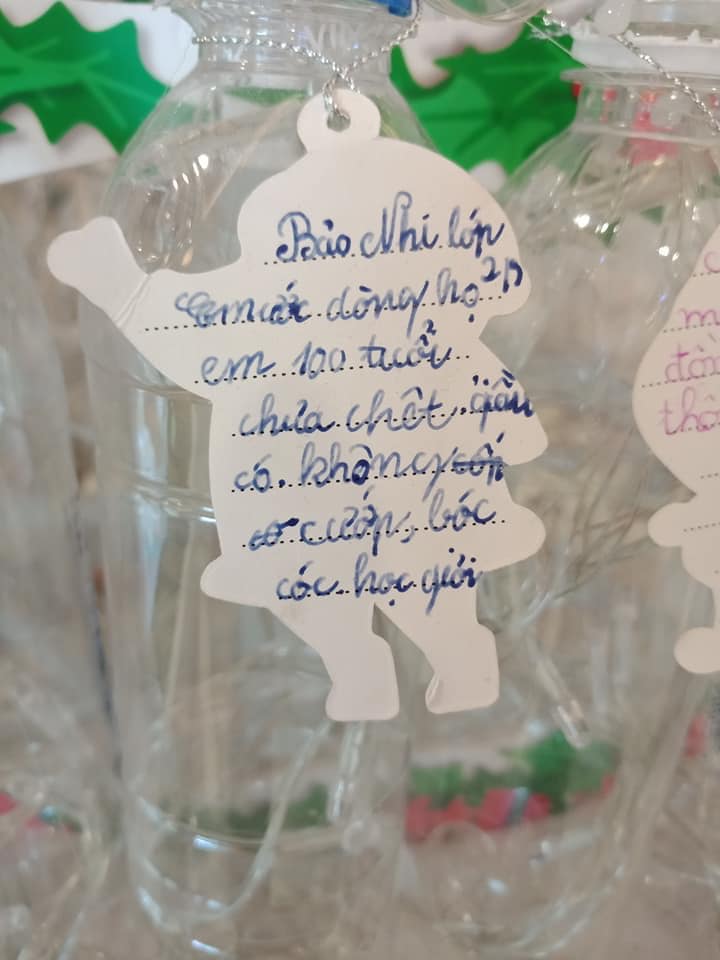 Bảo Nhi lớp 2/2
Em ước dòng họ
em 100 tuổi
chưa chết. giầu
có. không
cướp, bóc
cóc. học giỏi
m
thờ